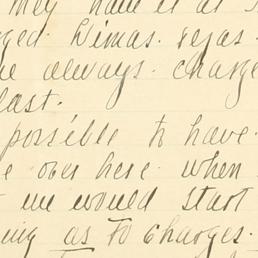 They have it at
Dimas. vejas.
always. charge
last.
possible to have.
over here. when
we would start
as to charges.